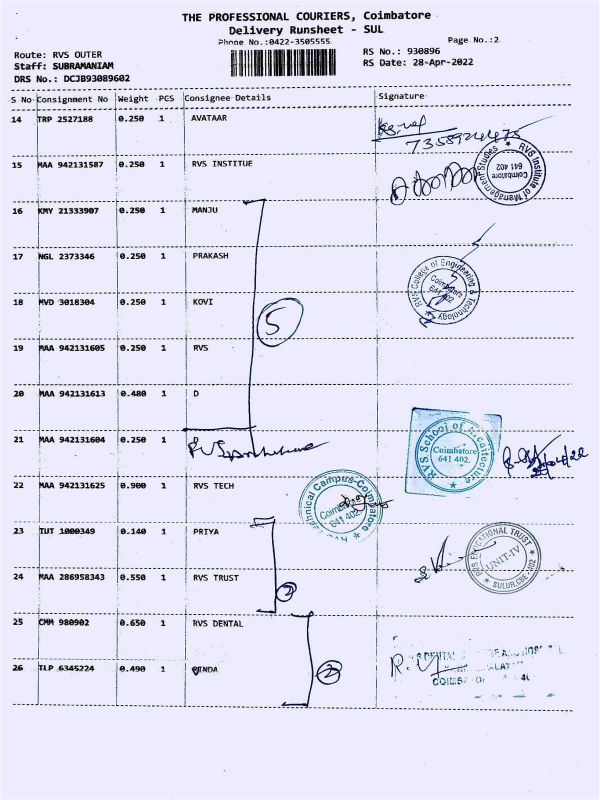 THE PROFESSIONAL COURIERS, Coimbatore
Delivery Runsheet - SUL
Phone No.:0422-3505555
Page No.:2
Route: RVS OUTER
RS No.: 930896
Staff: SUBRAMANIAM
RS Date: 28-Apr-2022
DRS No.: DCJB93089602
S No Consignment No Weight PCS Consignee Details Signature
14 TRP 2527188 0.250 1 AVATAAR
15 MAA 942131587 0.250 1 RVS INSTITUE
RVS Institute of Management Studies
Coimbatore
641 402
16 KMY 21333907 0.250 1 MANJU
17 NGL 2373346 0.250 1 PRAKASH
RVS College of Engineering & Technology
Coimbatore
641 402
18 MVD 3018304 0.250 1 KOVI
5
19 MAA 942131605 0.250 1 RVS
20 MAA 942131613 0.480 1 D
21 MAA 942131604 0.250 1
RVS School of Architecture
Coimbatore
641 402.
22 MAA 942131625 0.900 1 RVS TECH
Technical Campus-Coimbatore
Coimbatore
641 402
RVS
23 TUT 1000349 0.140 1 PRIYA
RVS EDUCATIONAL TRUST
UNIT-IV
SULUR, CBE - 402
24 MAA 286958343 0.550 1 RVS TRUST
2
25 CMM 980902 0.650 1 RVS DENTAL
26 TLP 6345224 0.490 1
2